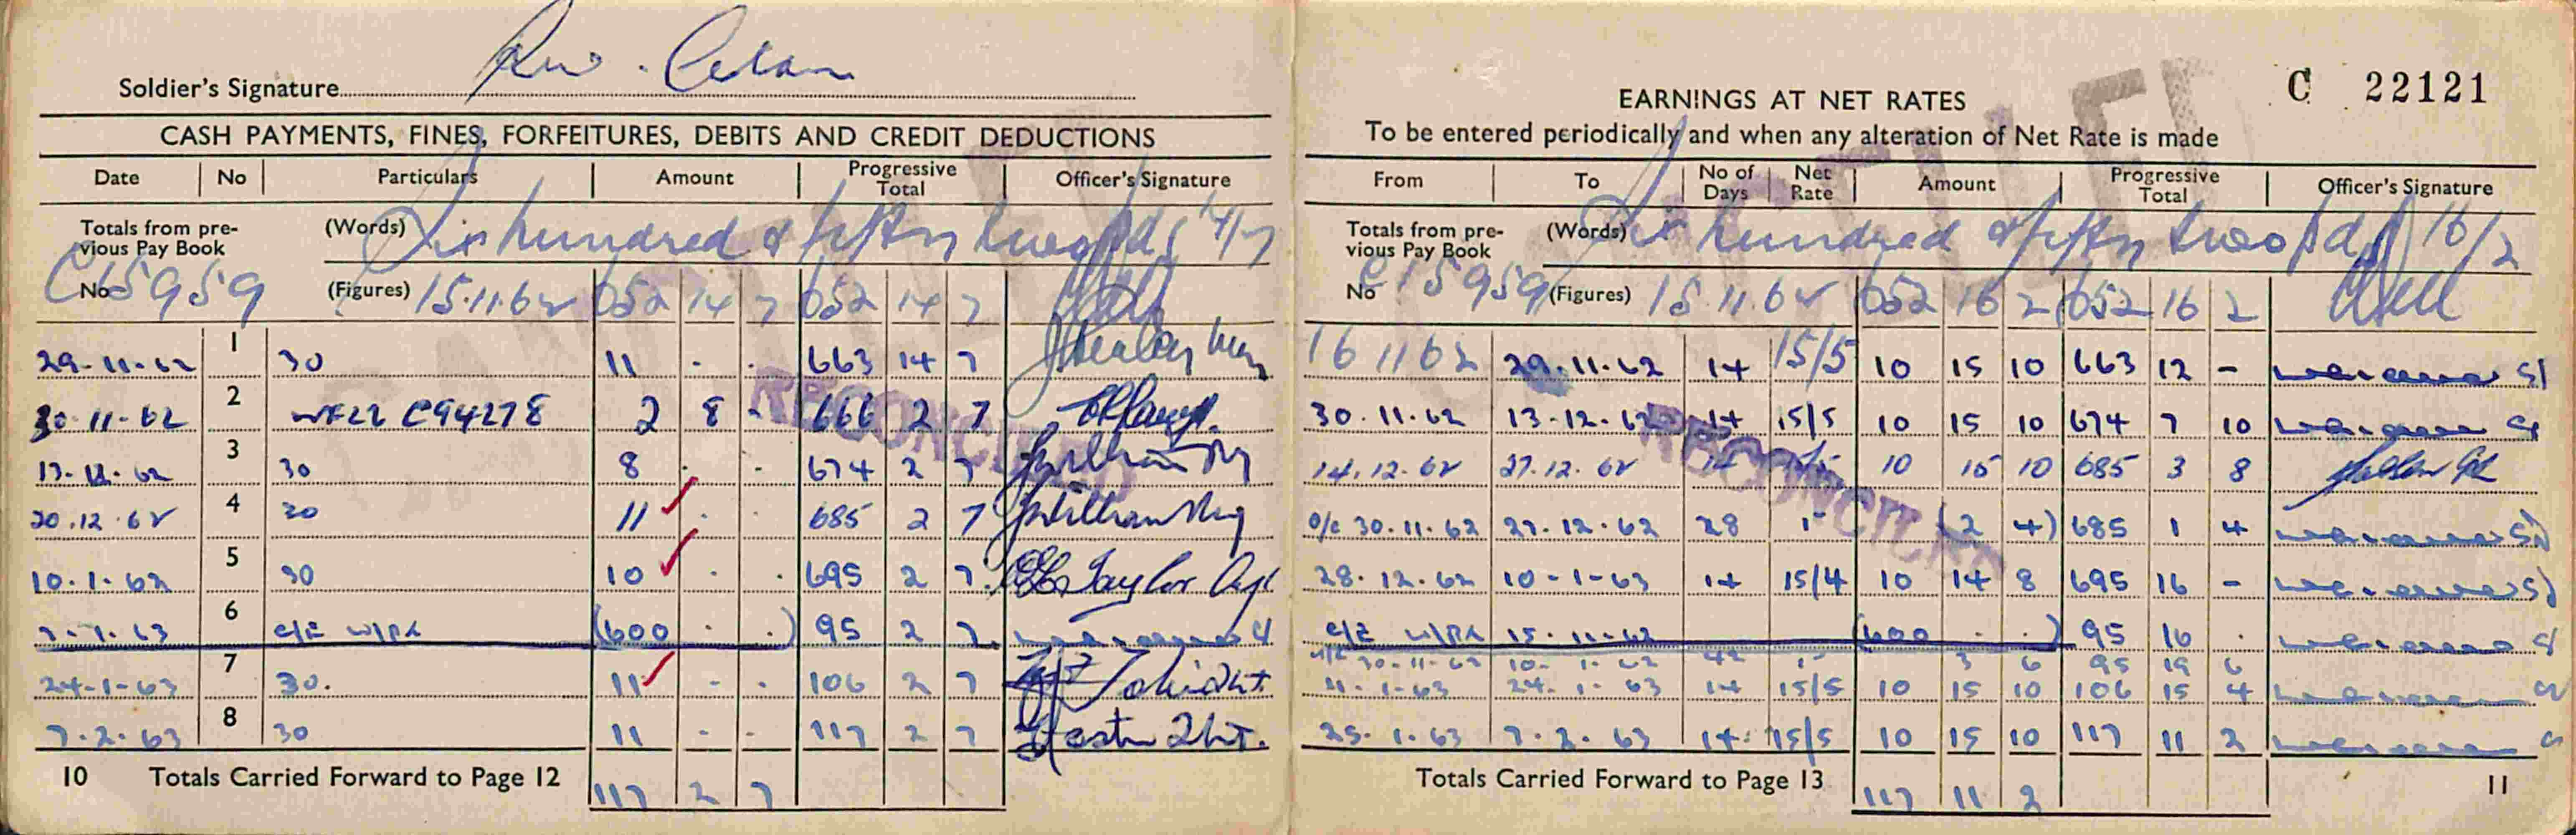 Soldier's Signature
CASH PAYMENTS, FINES, FORFEITURES, DEBITS AND CREDIT DEDUCTIONS
Date No Particulars Amount Progressive Total Officer's Signature
Totals from previous Pay Book (Words) Six hundred & fifty two pds 14/7
No C15959 (Figures) 15.11.62 652 14 7 652 14 7
29-11-62 1 30 11 - - 663 14 7
30-11-62 2 C94278 2 8 - 666 2 7
13-12-62 3 30 8 - - 674 2 7
20.12.62 4 30 11 - - 685 2 7
10.1.63 5 30 10 - - 695 2 7 Taylor
6 (600 - -) 95 2 7
24-1-63 7 30. 11 - - 106 2 7
7.2.63 8 30 11 - - 117 2 7 2Lt.
10 Totals Carried Forward to Page 12 117 2 7
CANCELLED
RECONCILED
C 22121
EARNINGS AT NET RATES
To be entered periodically and when any alteration of Net Rate is made
From To No of Days Net Rate Amount Progressive Total Officer's Signature
Totals from previous Pay Book (Words) Six hundred & fifty two pds 16/2
No C15959 (Figures) 15 11.62 652 16 2 652 16 2
16 11 62 29.11.62 14 15/5 10 15 10 663 12 -
30.11.62 13-12-62 14 15/5 10 15 10 674 7 10
14.12.62 27.12.62 14 15/5 10 15 10 685 3 8
o/c 30.11.62 27.12.62 28 1 (2 4) 685 1 4
28.12.62 10-1-63 14 15/4 10 14 8 695 16 -
15-11-62 (600 - -) 95 16 .
30-11-62 42 1 3 6 95 19 6
11.1-63 24.1-63 14 15/5 10 15 10 106 15 4
25.1.63 7.2.63 14 15/5 10 15 10 117 11 2
Totals Carried Forward to Page 13 117 11 2 11
CANCELLED
RECONCILED